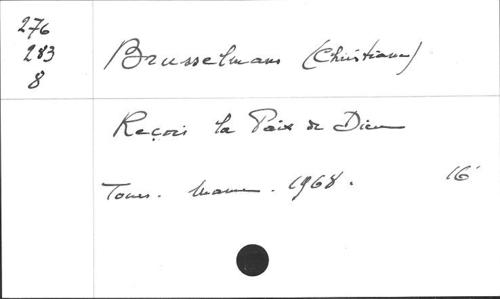 276
283
8
Brusselmans (Christiane)
Reçois la Paix de Dieu
Tours. Mame. 1968. 16°